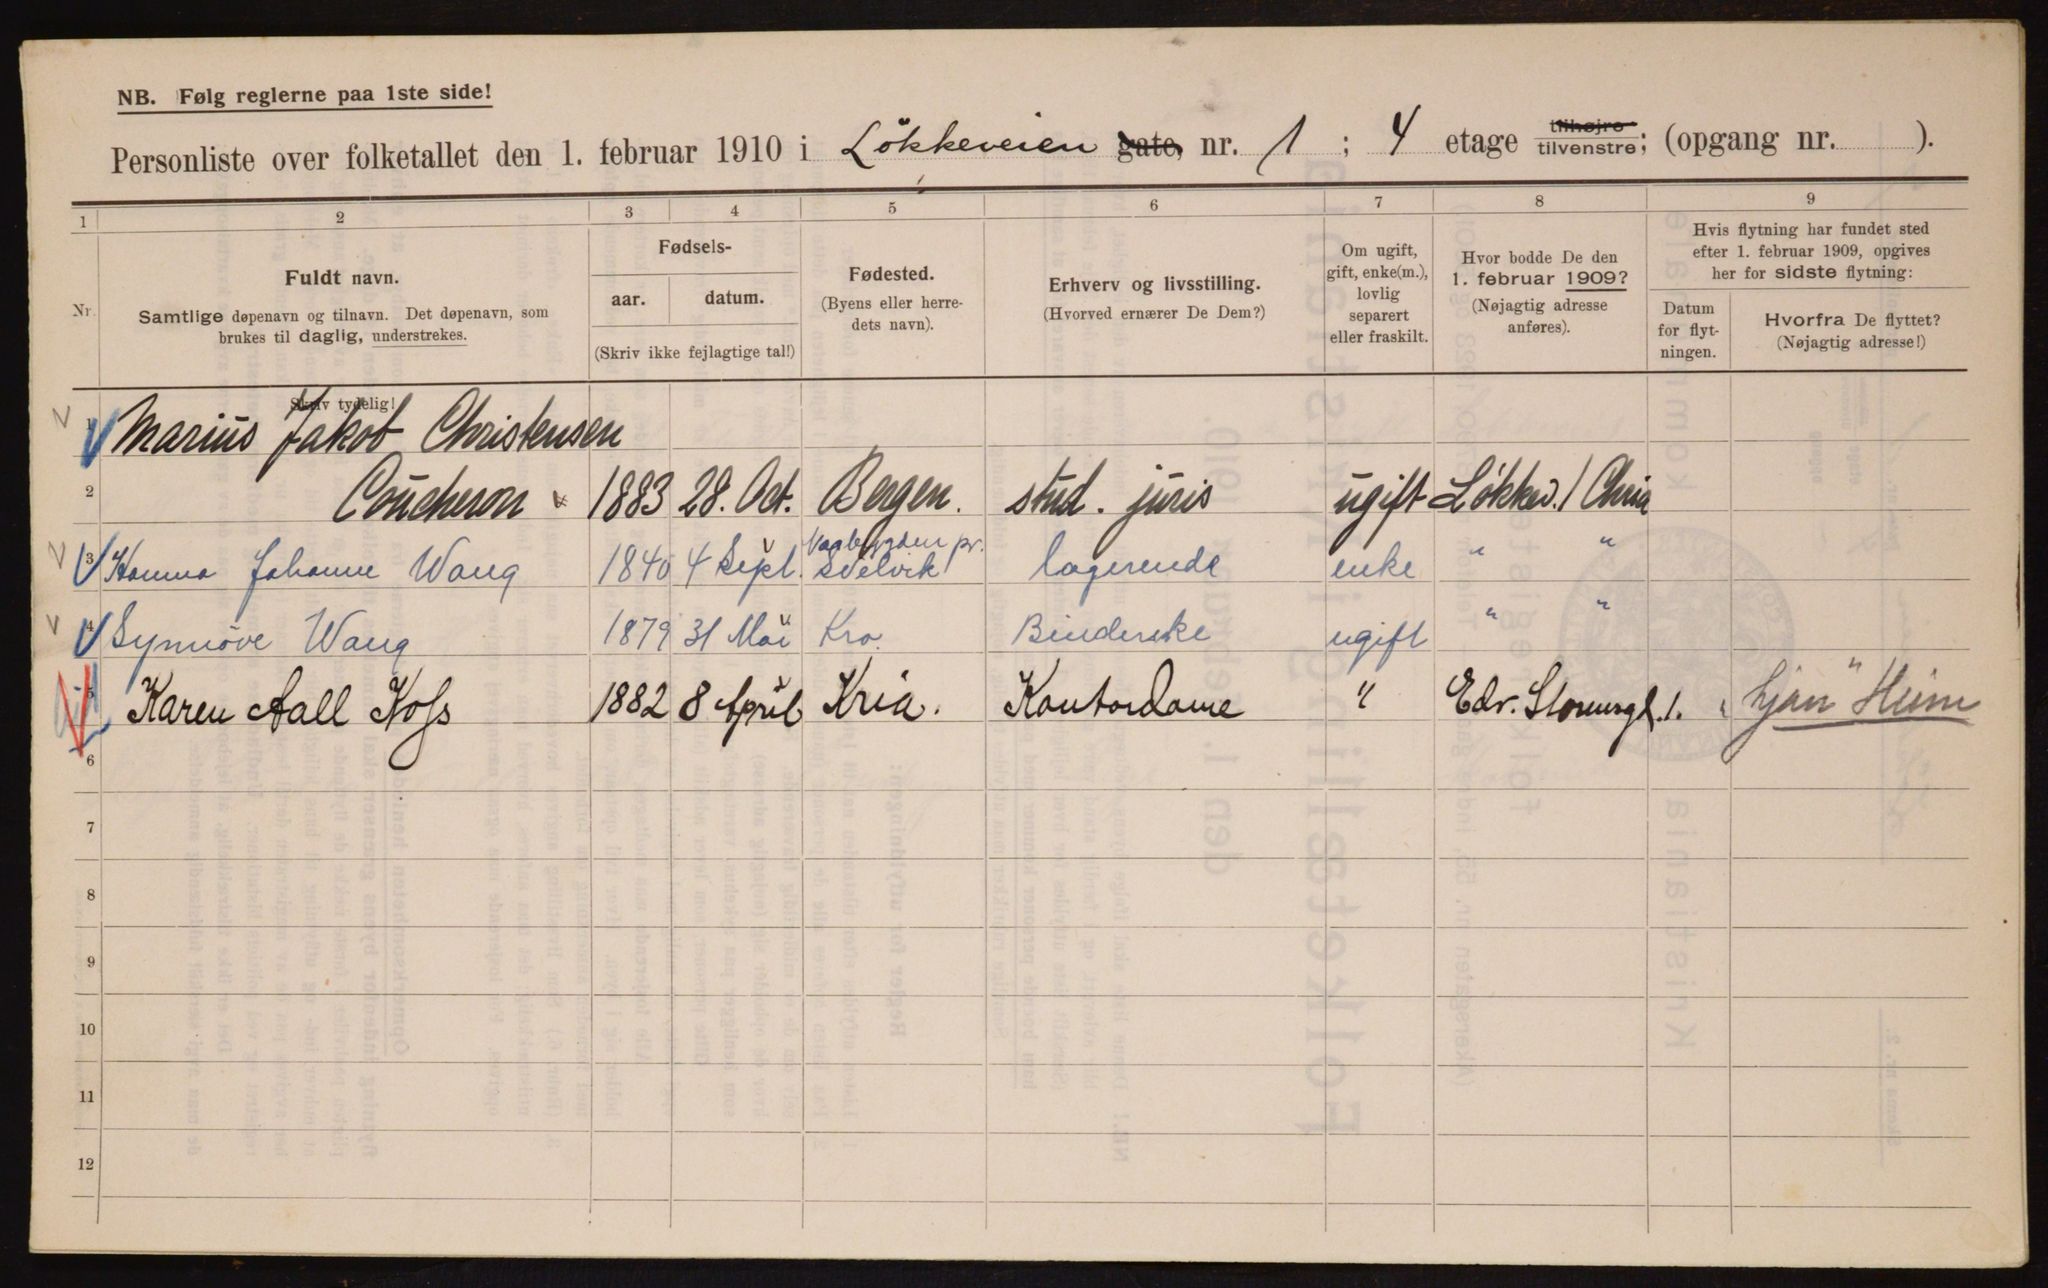 NB. Følg reglerne paa 1ste side!
Personliste over folketallet den 1. februar 1910 i Løkkeveien gate, nr. 1 ; 4 etage tilhøjre tilvenstre; (opgang nr. ).
1 2 3 4 5 6 7 8 9
Nr.
Fuldt navn.
Samtlige døpenavn og tilnavn. Det døpenavn, som
brukes til daglig, understrekes.
Skriv tydelig!
Fødsels-
aar. datum.
(Skriv ikke fejlagtige tal!)
Fødested.
(Byens eller herre-
dets navn).
Erhverv og livsstilling.
(Hvorved ernærer De Dem?)
Om ugift,
gift, enke(m.),
lovlig
separert
eller fraskilt.
Hvor bodde De den
1. februar 1909?
(Nøjagtig adresse
anføres).
Hvis flytning har fundet sted
efter 1. februar 1909, opgives
her for sidste flytning:
Datum
for flyt-
ningen.
Hvorfra De flyttet?
(Nøjagtig adresse!)
1 Marius Jakob Christensen
2 Coucheron 1883 28. Oct. Bergen. stud. juris ugift Løkkev. 1 Chria
3 Hanna Johanne Wang 1840 4 Sept. Svelvik logerende enke " "
4 Synnöve Wang 1879 31 Mai Kra. Binderske ugift " "
5 Karen Aall Koss 1882 8 April Kria. Kontordame " Edv. Stormsgt. 1. Ljan" Heim
6
7
8
9
10
11
12